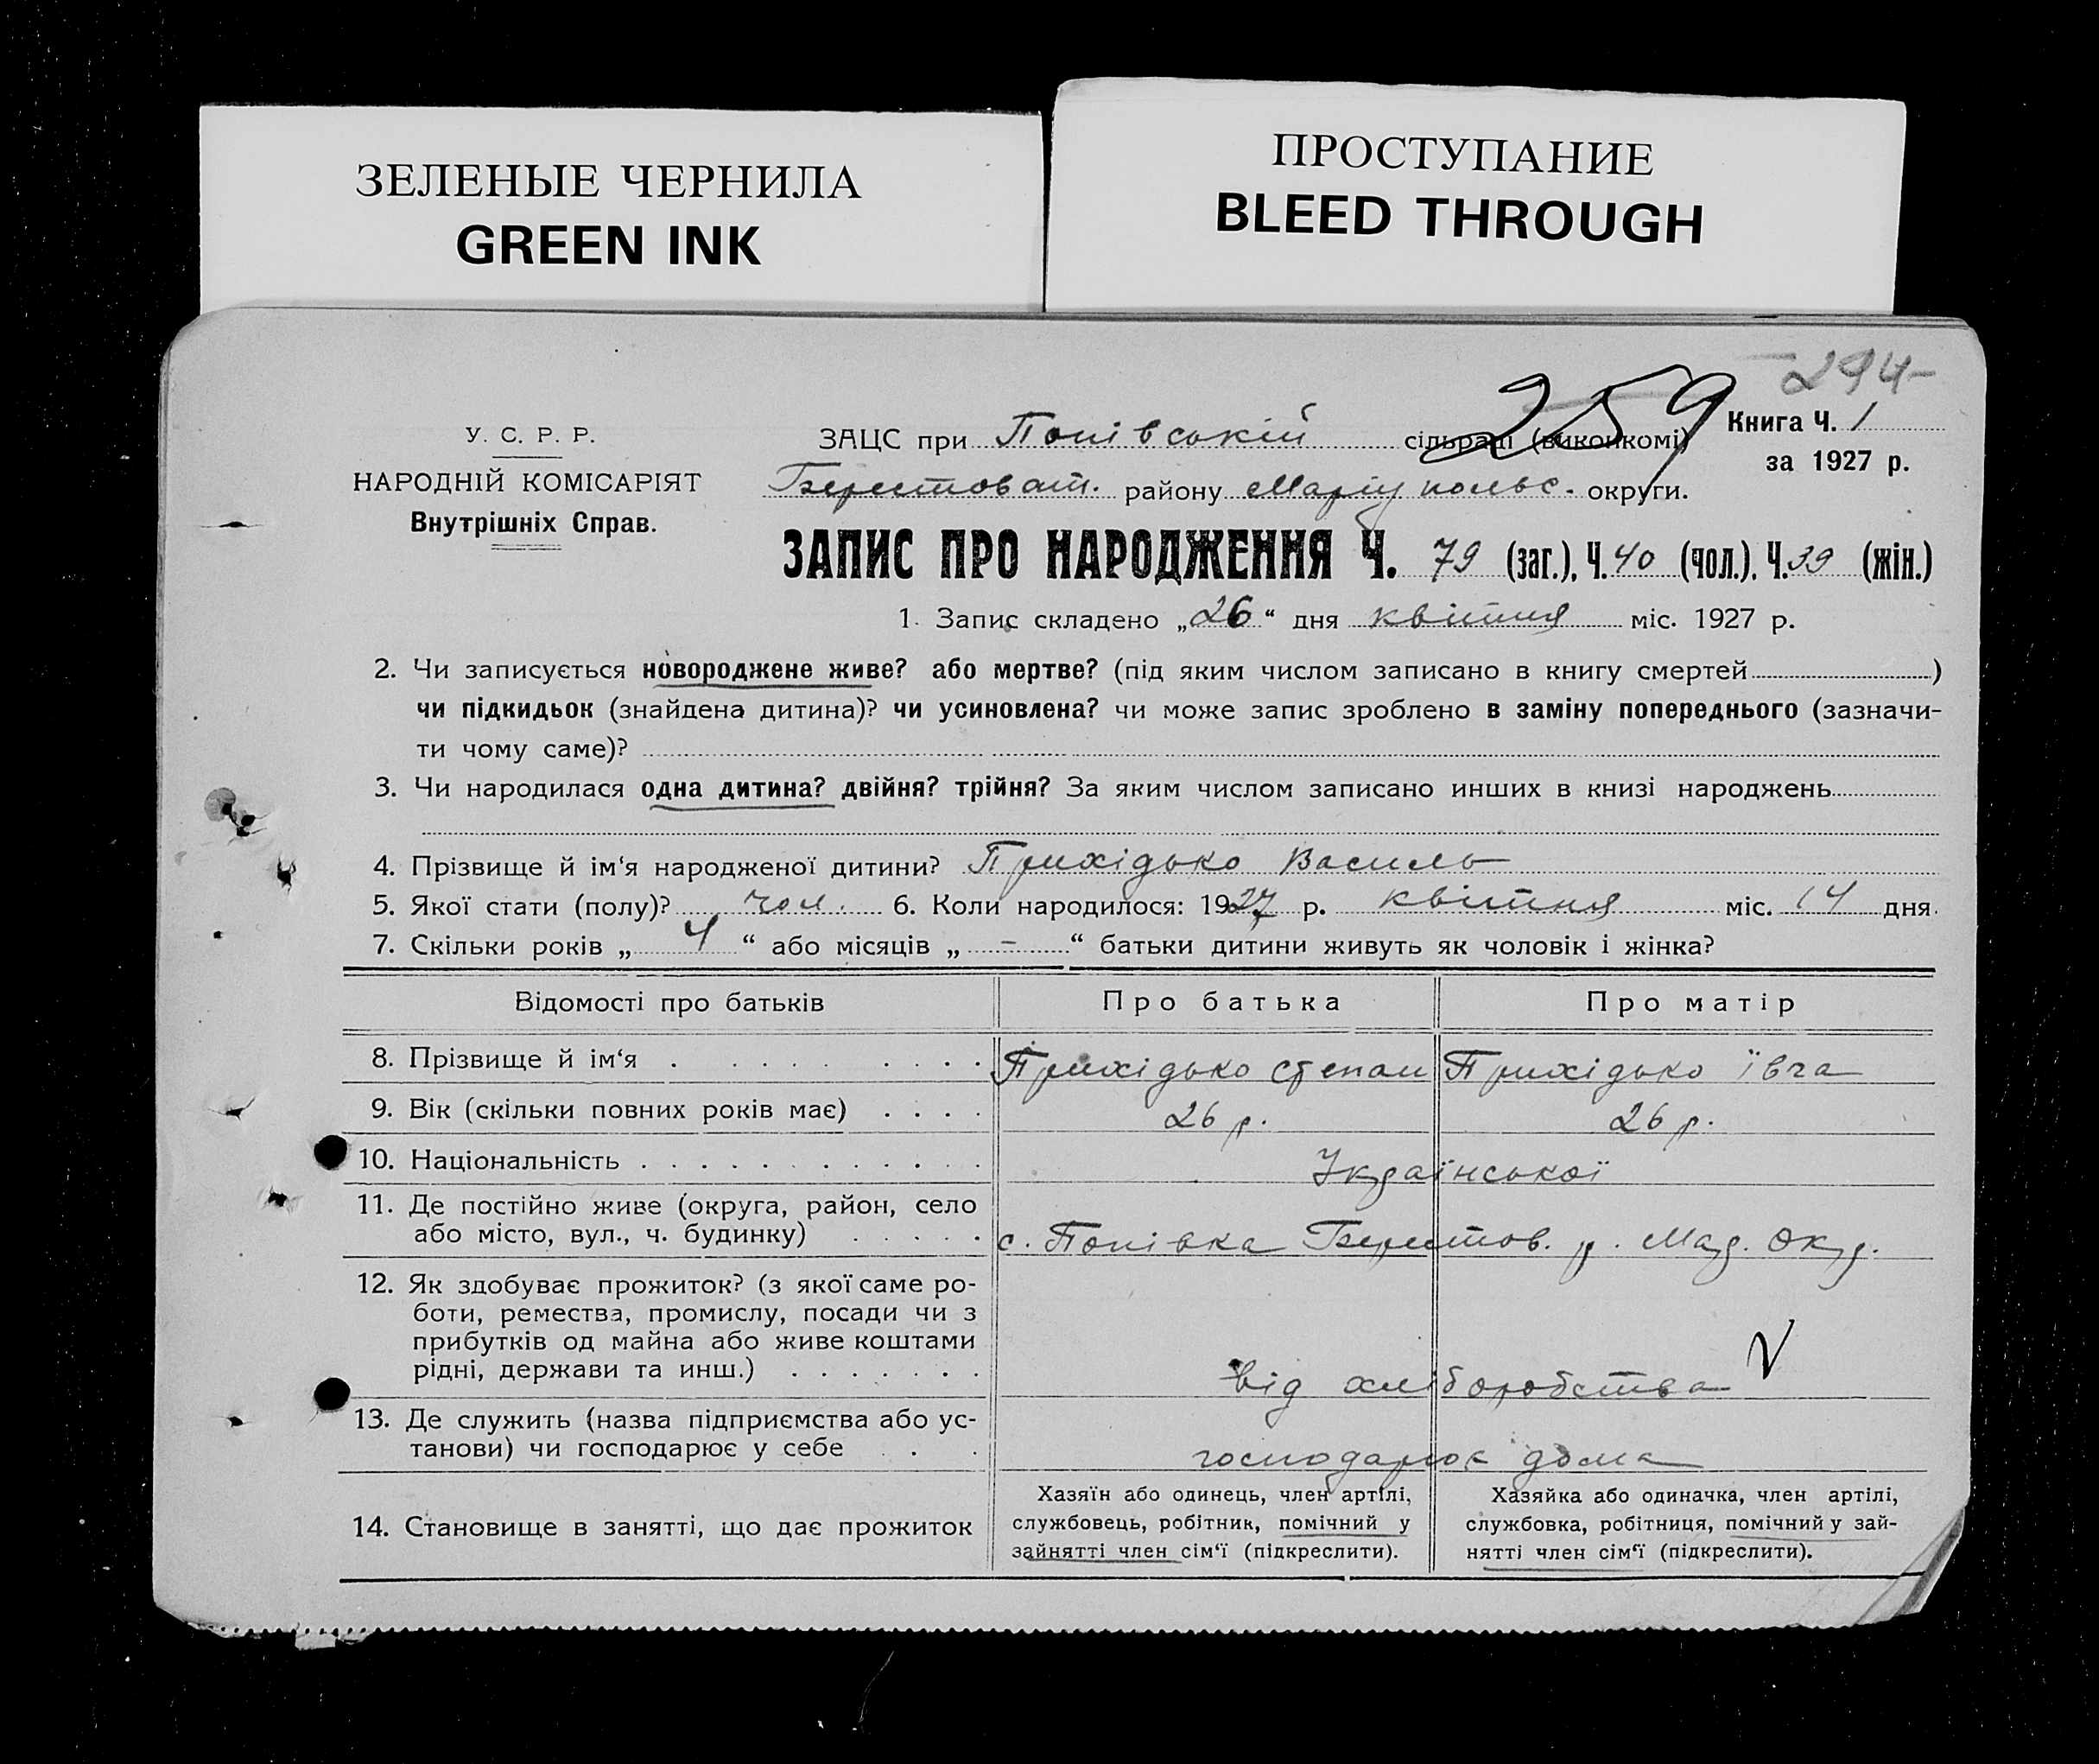 ЗЕЛЕНЫЕ ЧЕРНИЛА
GREEN INK
ПРОСТУПАНИЕ
BLEED THROUGH
294-
259
У. С. Р. Р.
НАРОДНІЙ КОМІСАРІЯТ
Внутрішніх Справ.
ЗАЦС при Попівській сільраді (виконкомі)
Книга Ч. 1
за 1927 р.
Берестоват. району Маріупольс. округи.
ЗАПИС ПРО НАРОДЖЕННЯ Ч. 79 (заг.), Ч. 40 (чол.). Ч. 39 (жін.)
1. Запис складено „26“ дня квітня міс. 1927 р.
2. Чи записується новороджене живе? або мертве? (під яким числом записано в книгу смертей )
чи підкидьок (знайдена дитина)? чи усиновлена? чи може запис зроблено в заміну попереднього (зазначи-
ти чому саме)?
3. Чи народилася одна дитина? двійня? трійня? За яким числом записано инших в книзі народжень
4. Прізвище й ім‘я народженої дитини? Прихідько Василь
5. Якої стати (полу)? чол. 6. Коли народилося: 1927 р. квітня міс. 14 дня
7. Скільки років „ 4 “ або місяців „ - “ батьки дитини живуть як чоловік і жінка?
Відомості про батьків Про батька Про матір
8. Прізвище й ім‘я Прихідько Степан Прихідько Ївга
9. Вік (скільки повних років має) 26 р. 26 р.
10. Національність Української
11. Де постійно живе (округа, район, село
або місто, вул., ч. будинку) с. Попівка Берестов. р. Мар. Окр.
12. Як здобуває прожиток? (з якої саме ро-
боти, ремества, промислу, посади чи з
прибутків од майна або живе коштами
рідні, держави та инш.) від хліборобства V
13. Де служить (назва підприємства або ус-
танови) чи господарює у себе господарює дома
14. Становище в занятті, що дає прожиток
Хазяїн або одинець, член артілі,
службовець, робітник, помічний у
зайнятті член сім‘ї (підкреслити).
Хазяйка або одиначка, член артілі,
службовка, робітниця, помічний у зай-
нятті член сім‘ї (підкреслити).